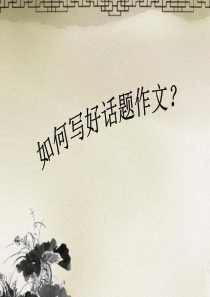 如何写好话题作文？